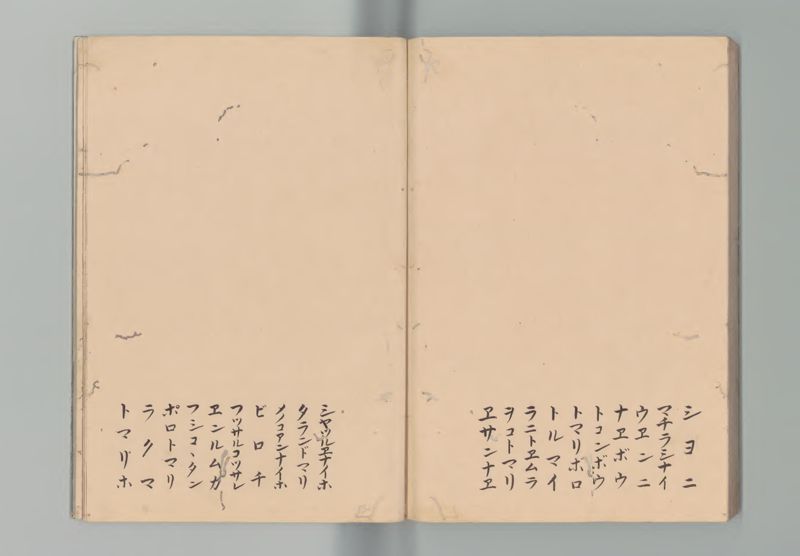 シヨニ
マチラシナイ
ウヱンニ
ナヱボウ
トコンボウ
トマリポロ
トルマイ
ラニトヱムラ
ヲコトマリ
ヱサンナヱ
シヤツルヱナイホ
タランドマリ
メノコアンナイホ
ビロチ
フツサルコツサレ
ヱンルムカ
フシコヽタン
ポロトマリ
ラクマ
トマリホ